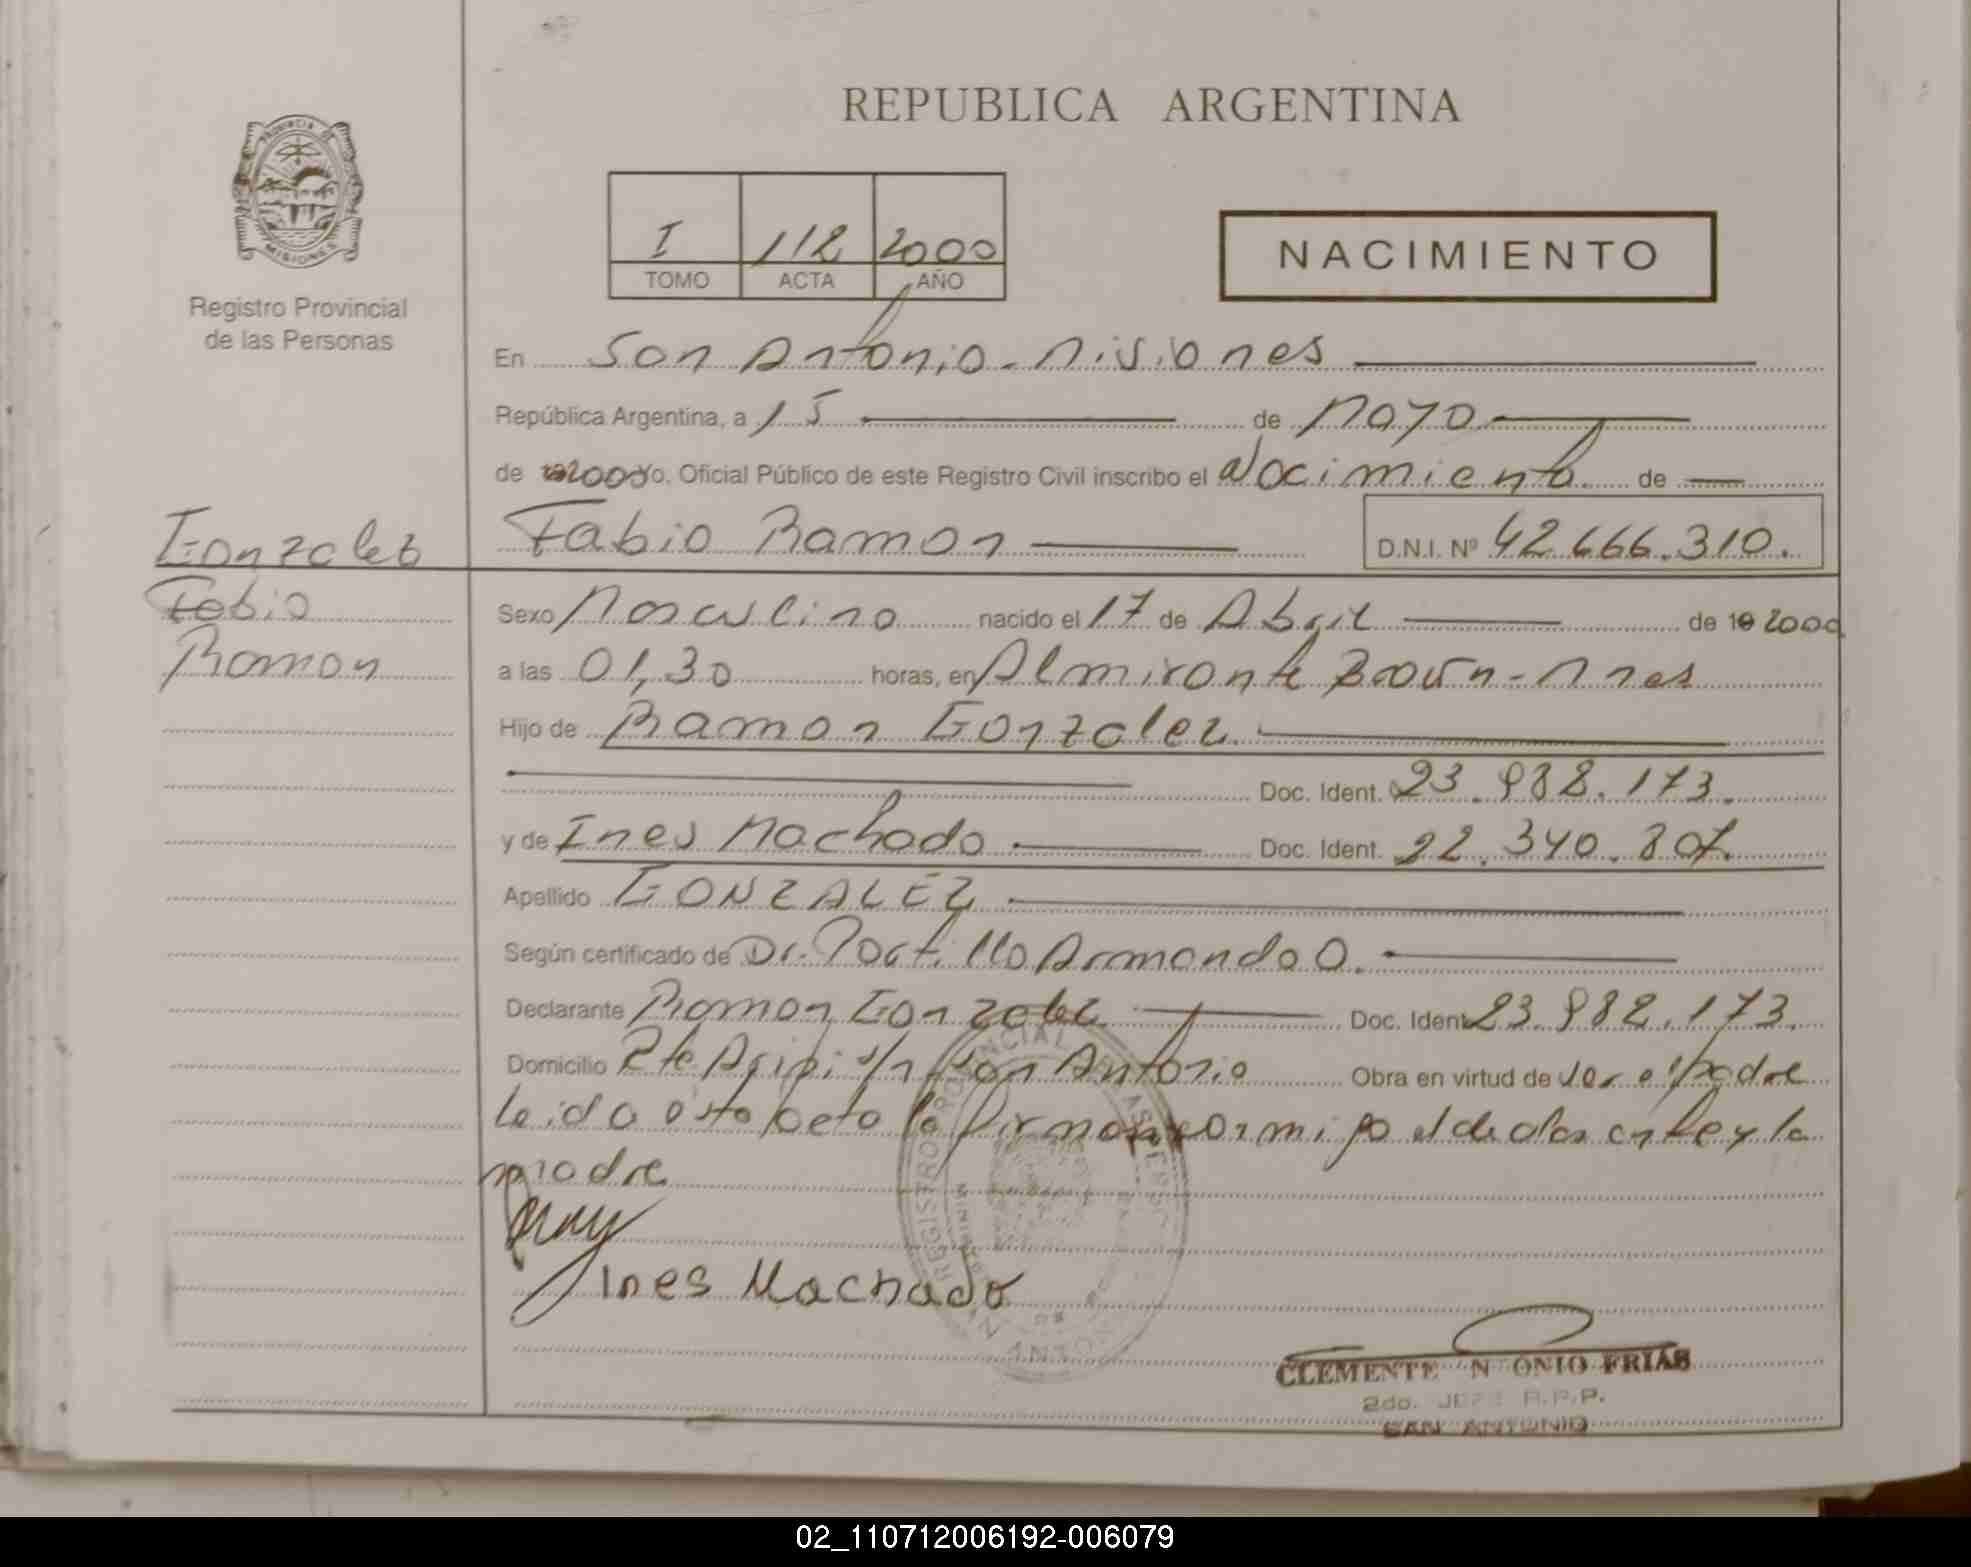 REPUBLICA ARGENTINA
PROVINCIA DE MISIONES
Registro Provincial
de las Personas
I 112 2000
TOMO ACTA AÑO
NACIMIENTO
En San Antonio - Misiones
República Argentina, a 15 de Mayo
de 2000 Yo, Oficial Público de este Registro Civil inscribo el Nacimiento de
Fabio Ramon D.N.I. Nº 42.666.310.
Gonzalez
Fabio
Ramon
Sexo Masculino nacido el 17 de Abril de 19 2000
a las 01,30 horas, en Almirante Brown - Mnes
Hijo de Ramon Gonzalez
Doc. Ident. 23.988.173.
y de Ines Machado Doc. Ident. 22.340.807.
Apellido GONZALEZ
Según certificado de Dr. Portillo Armando O.
Declarante Ramon Gonzalez Doc. Ident. 23.982.173.
Domicilio Pte Agipi s/n San Antonio Obra en virtud de ser el padre
leida esta acta la firman por mi el declarante y la
madre
Ines Machado
REGISTRO PROVINCIAL
SAN ANTONIO
CLEMENTE N ONIO FRIAS
2do. JEFE R.P.P.
SAN ANTONIO
02_110712006192-006079